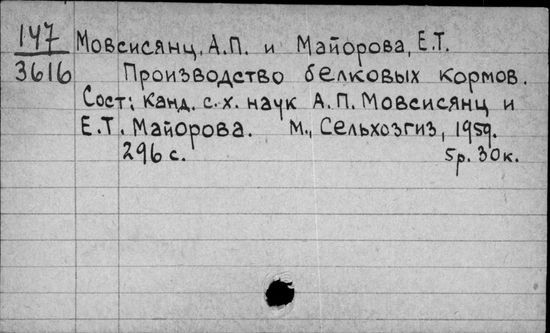 147 Мовсисянц, А.П. и Майорова, Е.Т.
3616 Производство белковых кормов.
Сост: Канд. с.-х. наук А.П. Мовсисянц и
Е.Т. Майорова. М., Сельхозгиз, 1959.
296 с. 5р. 30к.